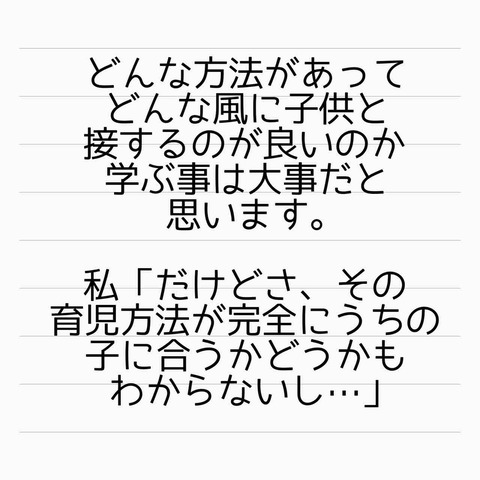 どんな方法があって
どんな風に子供と
接するのが良いのか
学ぶ事は大事だと
思います。
私「だけどさ、その
育児方法が完全にうちの
子に合うかどうかも
わからないし…」